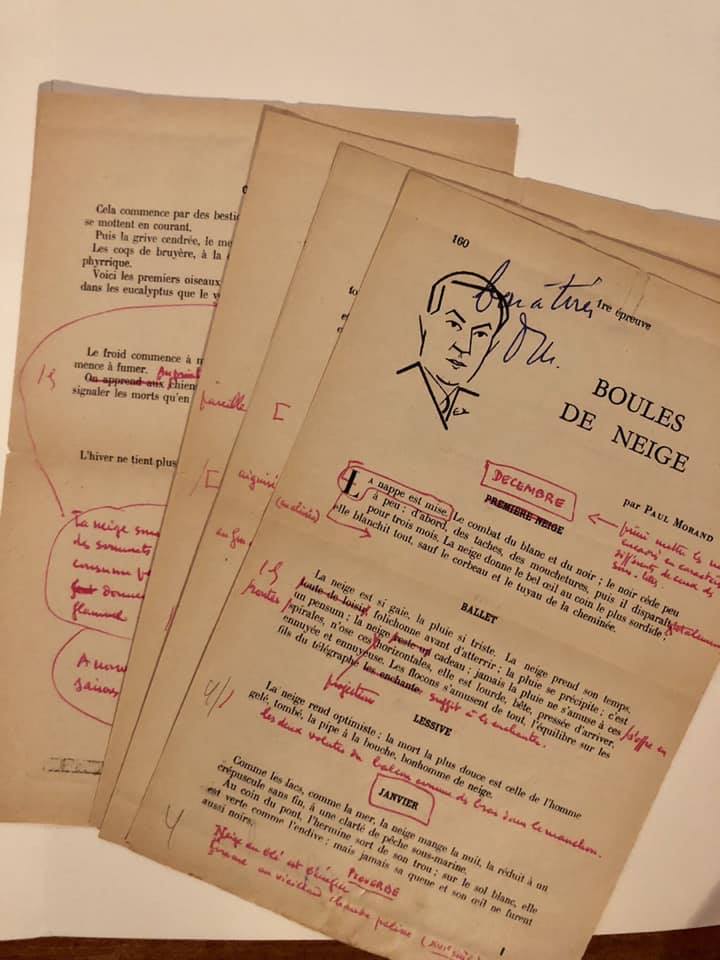 Cela commence par des
se mottent en courant.
Puis la grive cendrée, le
Les coqs de bruyère, à la
phyrrique.
Voici les premiers oiseaux
dans les eucalyptus que le
Le froid commence à
mence à fumer.
On apprend aux chiens
signaler les morts qu'en
L'hiver ne tient plus
La neige
des sommets
donne
A nou
saisons
pareille
160
bon à tirer
1re épreuve
BOULES
DE NEIGE
par PAUL MORAND
DECEMBRE
PREMIÈRE NEIGE
LA nappe est mise. Le combat du blanc et du noir ; le noir cède peu
à peu : d'abord, des taches, des mouchetures, puis il disparaît
pour trois mois. La neige donne le bel œil au coin le plus sordide ;
elle blanchit tout, sauf le corbeau et le tuyau de la cheminée.
totalement
BALLET
La neige est si gaie, la pluie si triste. La neige prend son temps,
toute de loisir, folichonne avant d'atterrir ; la pluie se précipite ; c'est
un pensum ; la neige reste un cadeau ; jamais la pluie ne s'amuse à ces
spirales, n'ose ces horizontales, elle est lourde, bête, pressée d'arriver,
ennuyée et ennuyeuse. Les flocons s'amusent de tout, l'équilibre sur les
fils du télégraphe les enchante. suffit à les enchanter.
s'offre en
LESSIVE
La neige rend optimiste : la mort la plus douce est celle de l'homme
gelé, tombé, la pipe à la bouche, bonhomme de neige.
les deux volutes du balcon comme des bras dans le manchon.
JANVIER
Comme les lacs, comme la mer, la neige mange la nuit, la réduit à un
crépuscule sans fin, à une clarté de pêche sous-marine.
Au coin du pont, l'hermine sort de son trou ; sur le sol blanc, elle
est verte comme l'endive ; mais jamais sa queue et son œil ne furent
aussi noirs.
PROVERBE
Neige au blé est bénéfice
1